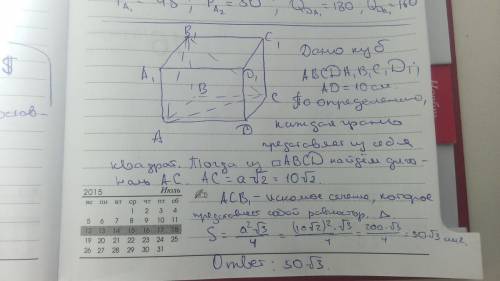 = 48 ; P_A2 = 50 Q_DA1 = 180, Q_DA = 160
B1 C1
A1 D1
B C
A D
Дано куб
ABCDA1B1C1D1,
AD = 10 см.
По определению,
каждая грань
представляет из себя
квадрат. Тогда из □ABCD найдём диаго-
наль AC. AC = a√2 = 10√2.
ACB1 – искомое сечение, которое
представляет собой равностор. △
S = a²√3/4 = (10√2)²·√3/4 = 200·√3/4 = 50√3 см.
Ответ: 50√3.
$
2015 Июль
пн вт ср чт пт сб вс
1 2 3 4
5 6 7 8 9 10 11
12 13 14 15 16 17 18
19 20 21 22 23 24 25
26 27 28 29 30 31